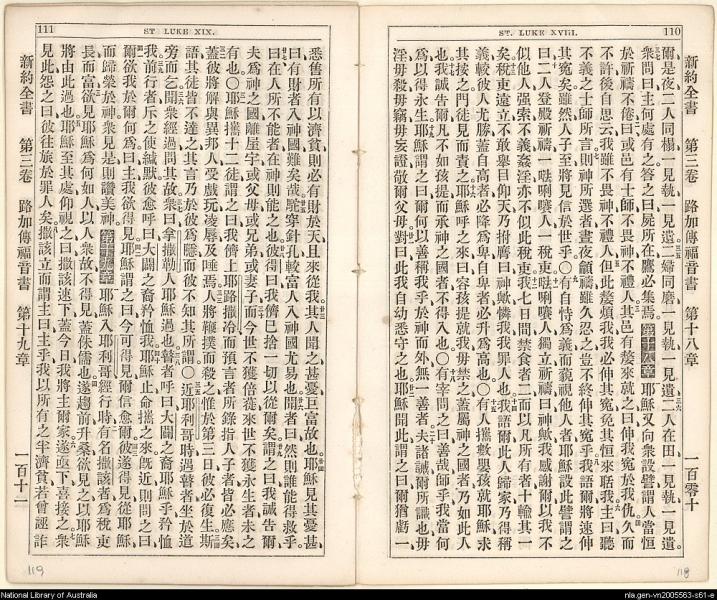 110
ST. LUKE XVIII.
新約全書 第三卷 路加傳福音書 第十八章 一百零十
爾是夜二人同榻一見執一見遺二婦同磨一見執一見遺二人在田一見執一見遺
衆問曰主何處有之答之曰屍所在鷹必集焉第十八章耶穌又向衆設譬謂人當恒
於祈禱不倦曰或邑有士師不畏神不禮人其邑有嫠來就之曰伸我冤於我仇久而
不許後自思云我雖不畏神不禮人但此嫠煩我我必伸其冤免其恒來聒我主曰聽
不義之士師所言則神所選者晝夜籲禱雖久忍之豈不終伸其冤乎我語爾將速伸
其冤矣雖然人子至將見信於世乎○有自恃爲義而藐視他人者耶穌設此譬謂之
曰二人登殿祈禱一唎人一稅吏唎人獨立祈禱曰神歟我感謝爾以我不
似他人强索不義姦淫亦不似此稅吏我七日間禁食者二而以凡所有者十輸其一
矣稅吏遠立不敢舉目仰天乃拊膺曰神歟憐我我罪人也我語爾此人歸家乃得稱
義較彼人尤勝蓋自高者必降爲卑自卑者必升爲高也○有人攜數嬰孩就耶穌求
其捫之門徒見而責之耶穌呼之來曰容孩提就我毋禁之蓋屬神之國者乃如此人
也我誠告爾凡不如孩提而承神之國者不得入也○有宰問之曰善哉師乎我當何
爲以得永生耶穌謂之曰爾何以善稱我乎於神而外無一善者夫諸誡爾所識也毋
淫毋殺毋竊毋妄證敬爾父母對曰此我自幼悉守之也耶穌聞此謂之曰爾猶虧一
118
111
ST. LUKE XIX.
悉售所有以濟貧則必有財於天且來從我其人聞之甚憂巨富故也耶穌見其憂甚
曰有財者入神國難矣哉駝穿針孔較富人入神國尤易也聞者曰然則誰能得救乎
曰在人所不能者在神則能之也彼得曰我儕已捨一切以從爾矣謂之曰我誠告爾
夫爲神之國離屋宇或父母或兄弟或妻子而今世不獲倍蓰來世不獲永生者未之
有也○耶穌攜十二徒謂之曰我儕上耶路撒冷而預言者所錄指人子者皆必應矣
蓋彼將解與異邦人受戲玩凌辱及唾焉人將鞭撲而殺之惟於第三日彼必復生斯
語其徒皆不達之其言乃於彼爲隱而彼不知其所謂○近耶利哥時遇瞽者坐於道
旁而乞聞衆經過問其故衆曰拿撒勒人耶穌過也瞽者呼曰大闢之裔耶穌乎矜恤
我前行者斥之使緘默彼愈呼曰大闢之裔矜恤我耶穌止命攜之來旣近則問之曰
爾欲我於爾何爲曰主我欲得見耶穌謂之曰今可得見爾信愈爾彼遂得見從耶穌
而歸榮於神衆見是則讚美神第十九章耶穌入耶利哥經行時有名撒該者爲稅吏
長而富欲見耶穌爲何如人以人衆故不得見蓋侏儒也遂趨前升桑欲見之以耶穌
將由此過也耶穌至其處仰視之曰撒該速下蓋今日我將主爾家遂亟下喜接之衆
見此怨之曰彼往旅於罪人矣撒該立而謂主曰主乎我以所有之半濟貧若曾誣詐
新約全書 第三卷 路加傳福音書 第十九章 一百十一
119
National Library of Australia
nla.gen-vn2005563-s61-e